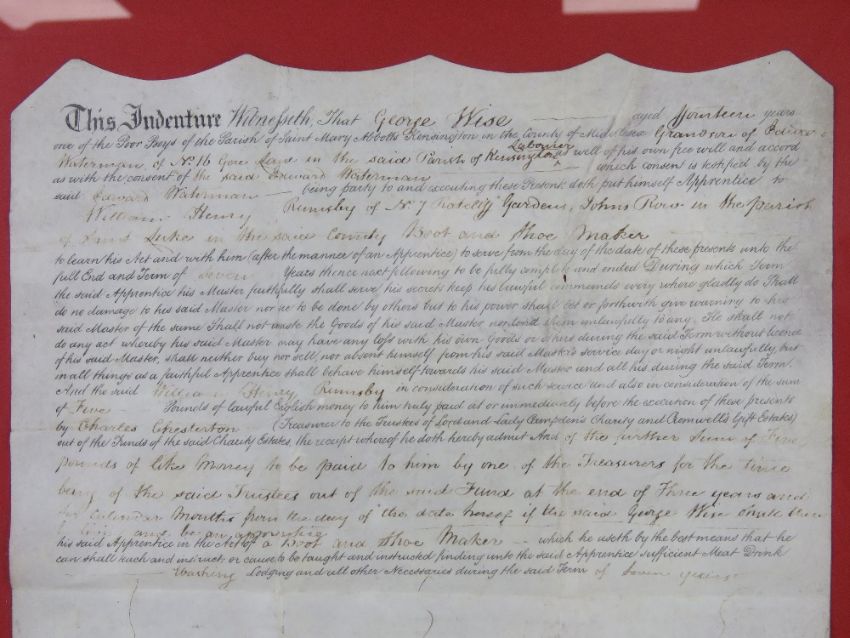 This Indenture Witnesseth, That George Wise aged fourteen years
one of the Poor Boys of the Parish of Saint Mary Abbotts Kensington in the County of Middlesex Grandson of Edward
Waterman of No. 16 Gore Lane in the said Parish of Kensington Labourer as well of his own free will and accord
as with the consent of the said Edward Waterman which consent is testified by the
said Edward Waterman being party to and executing these Presents doth put himself Apprentice to
William Henry Rumsby of No. 7 Gardens, Johns Row in the Parish
of Saint Luke in the said County Boot and Shoe Maker
to learn his Art and with him (after the manner of an Apprentice) to serve from the day of the date of these presents unto the
full End and Term of Seven Years thence next following to be fully complete and ended During which Term
the said Apprentice his Master faithfully shall serve his secrets keep his lawful commands every where gladly do Shall
do no damage to his said Master nor see to be done by others but to his power shall let or forthwith give warning to his
said Master of the same Shall not waste the Goods of his said Master nor lend them unlawfully to any. He shall not
do any act whereby his said Master may have any loss with his own Goods or others during the said Term without licence
of his said Master, shall neither buy nor sell, nor absent himself from his said Master's service day or night unlawfully, but
in all things as a faithful Apprentice shall behave himself towards his said Master and all his during the said Term.
And the said William Henry Rumsby in consideration of such service and also in consideration of the sum
of Five Pounds of lawful English money to him truly paid at or immediately before the execution of these presents
by Charles Chesterton (Treasurer to the Trustees of Lord and Lady Campden's Charity and Cromwell's Gift Estates)
out of the Funds of the said Charity Estates, the receipt whereof he doth hereby admit And of the further Sum of Five
pounds of like Money to be paid to him by one of the Treasurers for the time
being of the said Trustees out of the said Fund at the end of Three years and
Calendar Months from the day of the date hereof if the said George Wise shall then
be living and be an apprentice
his said Apprentice in the Art of a Boot and Shoe Maker which he useth by the best means that he
can shall teach and instruct or cause to be taught and instructed finding unto the said Apprentice sufficient Meat Drink
Washing Lodging and all other Necessaries during the said Term of Seven years